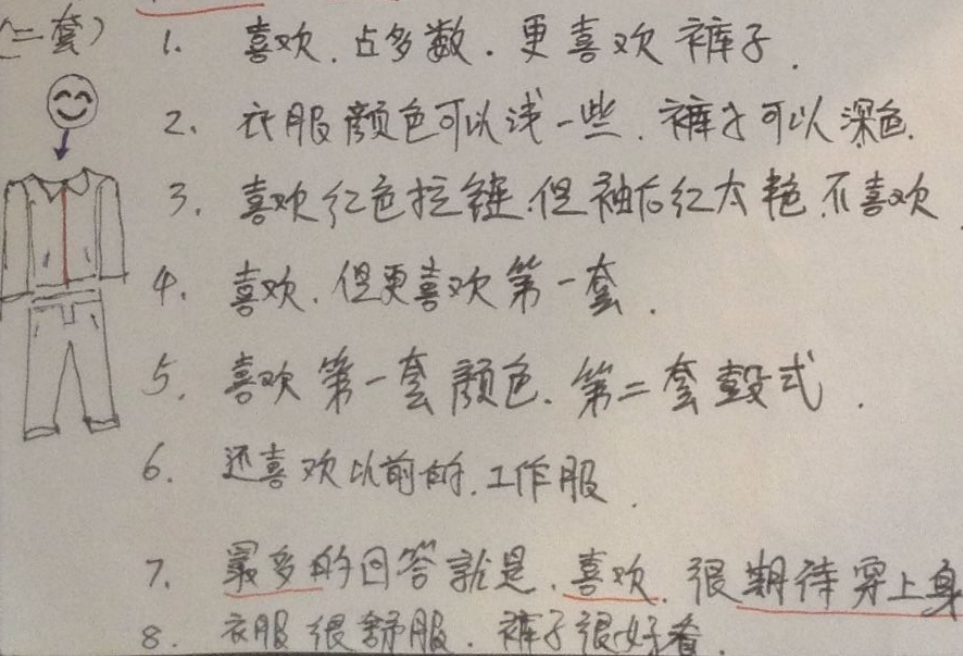 (二套)
1. 喜欢.占多数.更喜欢裤子.
2. 衣服颜色可以浅一些.裤子可以深色.
3. 喜欢红色拉链.但袖右红太艳.不喜欢
4. 喜欢.但更喜欢第一套.
5. 喜欢第一套颜色.第二套 式.
6. 还喜欢以前的.工作服.
7. 最多的回答就是.喜欢.很期待穿上身
8. 衣服很舒服.裤子很好看.